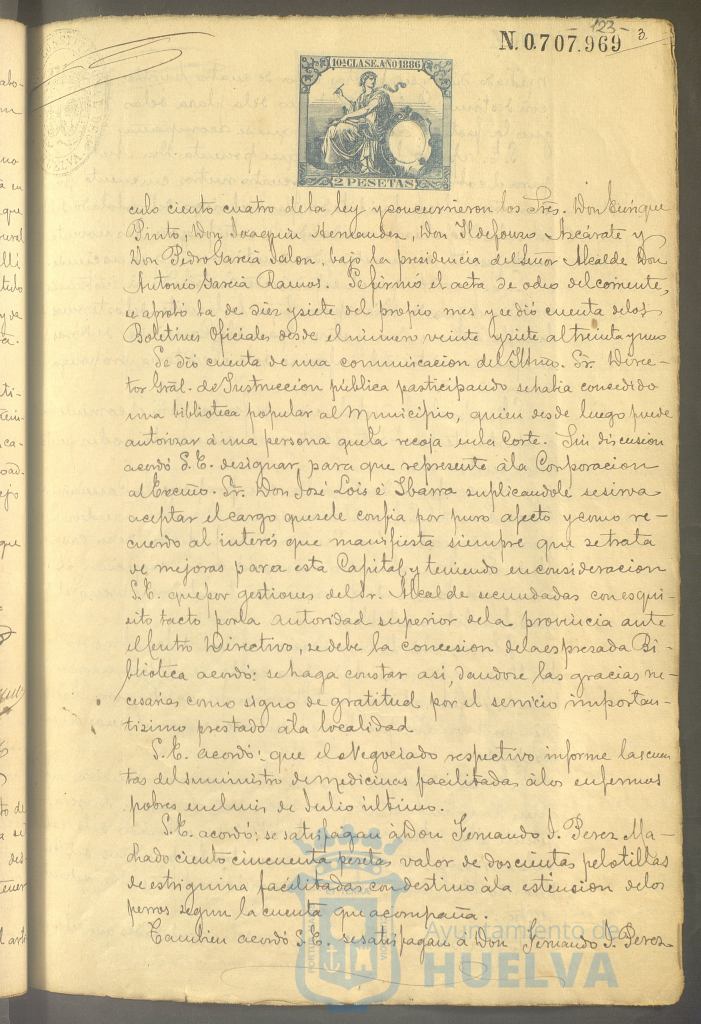 -123-
N.0.707.969
3.
10ª CLASE. AÑO 1886
2 PESETAS
culo ciento cuatro de la ley y concurrieron los Sres. Don Enrique
Pinto, Don Joaquin Hernandez, Don Ildefonso Azcárate y
Don Pedro Garcia Jalon, bajo la presidencia del Señor Alcalde Don
Antonio Garcia Ramos. Se firmó el acta de ocho del corriente,
se aprobó la de diez y siete del propio mes y se dió cuenta de los
Boletines Oficiales desde el número veinte y siete al treinta y uno
Se dió cuenta de una comunicacion del Iltmo. Sr. Direc-
tor Gral. de Instruccion pública participando se habia concedido
una biblioteca popular al Municipio, quien desde luego puede
autorizar á una persona que la recoja en la Corte. Sin discusion
acordó S.E. designar, para que represente á la Corporacion
al Excmo. Sr. Don José Lois é Ibarra suplicandole se sirva
aceptar el cargo que se le confia por puro afecto y como re-
cuerdo al interés que manifiesta siempre que se trata
de mejoras para esta Capital, y teniendo en consideracion
S.E. que por gestiones del Sr. Alcalde secundadas con esqui-
sito tacto por la autoridad superior de la provincia ante
el Centro Directivo, se debe la concesion de la espresada Bi-
blioteca acordó: se haga constar así, dandose las gracias ne-
cesarias como signo de gratitud por el servicio importan-
tisimo prestado á la localidad
S.E. acordó: que el Negociado respectivo informe las cuen
tas del suministro de medicinas facilitadas á los enfermos
pobres en el mes de Julio último.
S.E. acordó: se satisfagan á Don Fernando J. Perez Ma-
chado ciento cincuenta pesetas valor de doscientas pelotillas
de estrignina facilitadas con destino á la estincion de los
perros segun la cuenta que acompaña.
Tambien acordó S.E. se satisfagan á Don Fernando J. Perez
Ayuntamiento de
HUELVA